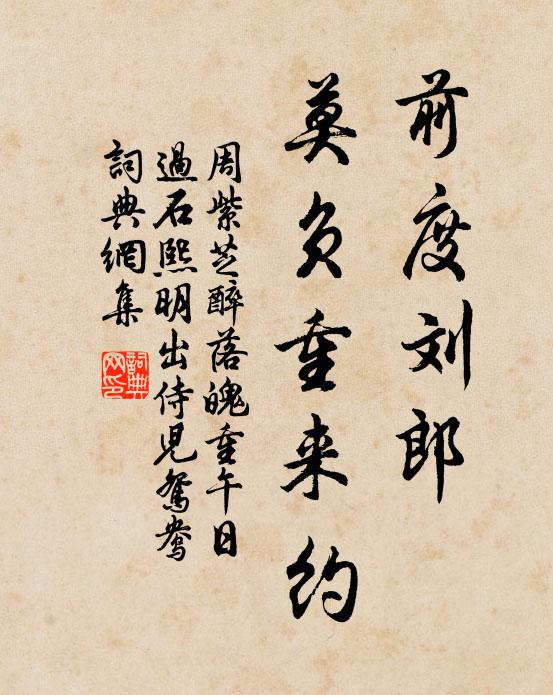 前度刘郎
莫负重来约
周紫芝醉落魄重午日
過石熙明出侍児鸳鸯
詞典網集
詞典网印